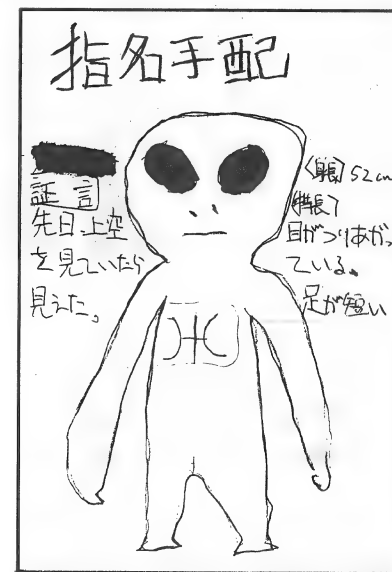 指名手配
証言
先日、上空
を見ていたら
見えた。
〈身長〉52cm
〈特長〉
目がつりあがっ
ている。
足が短い